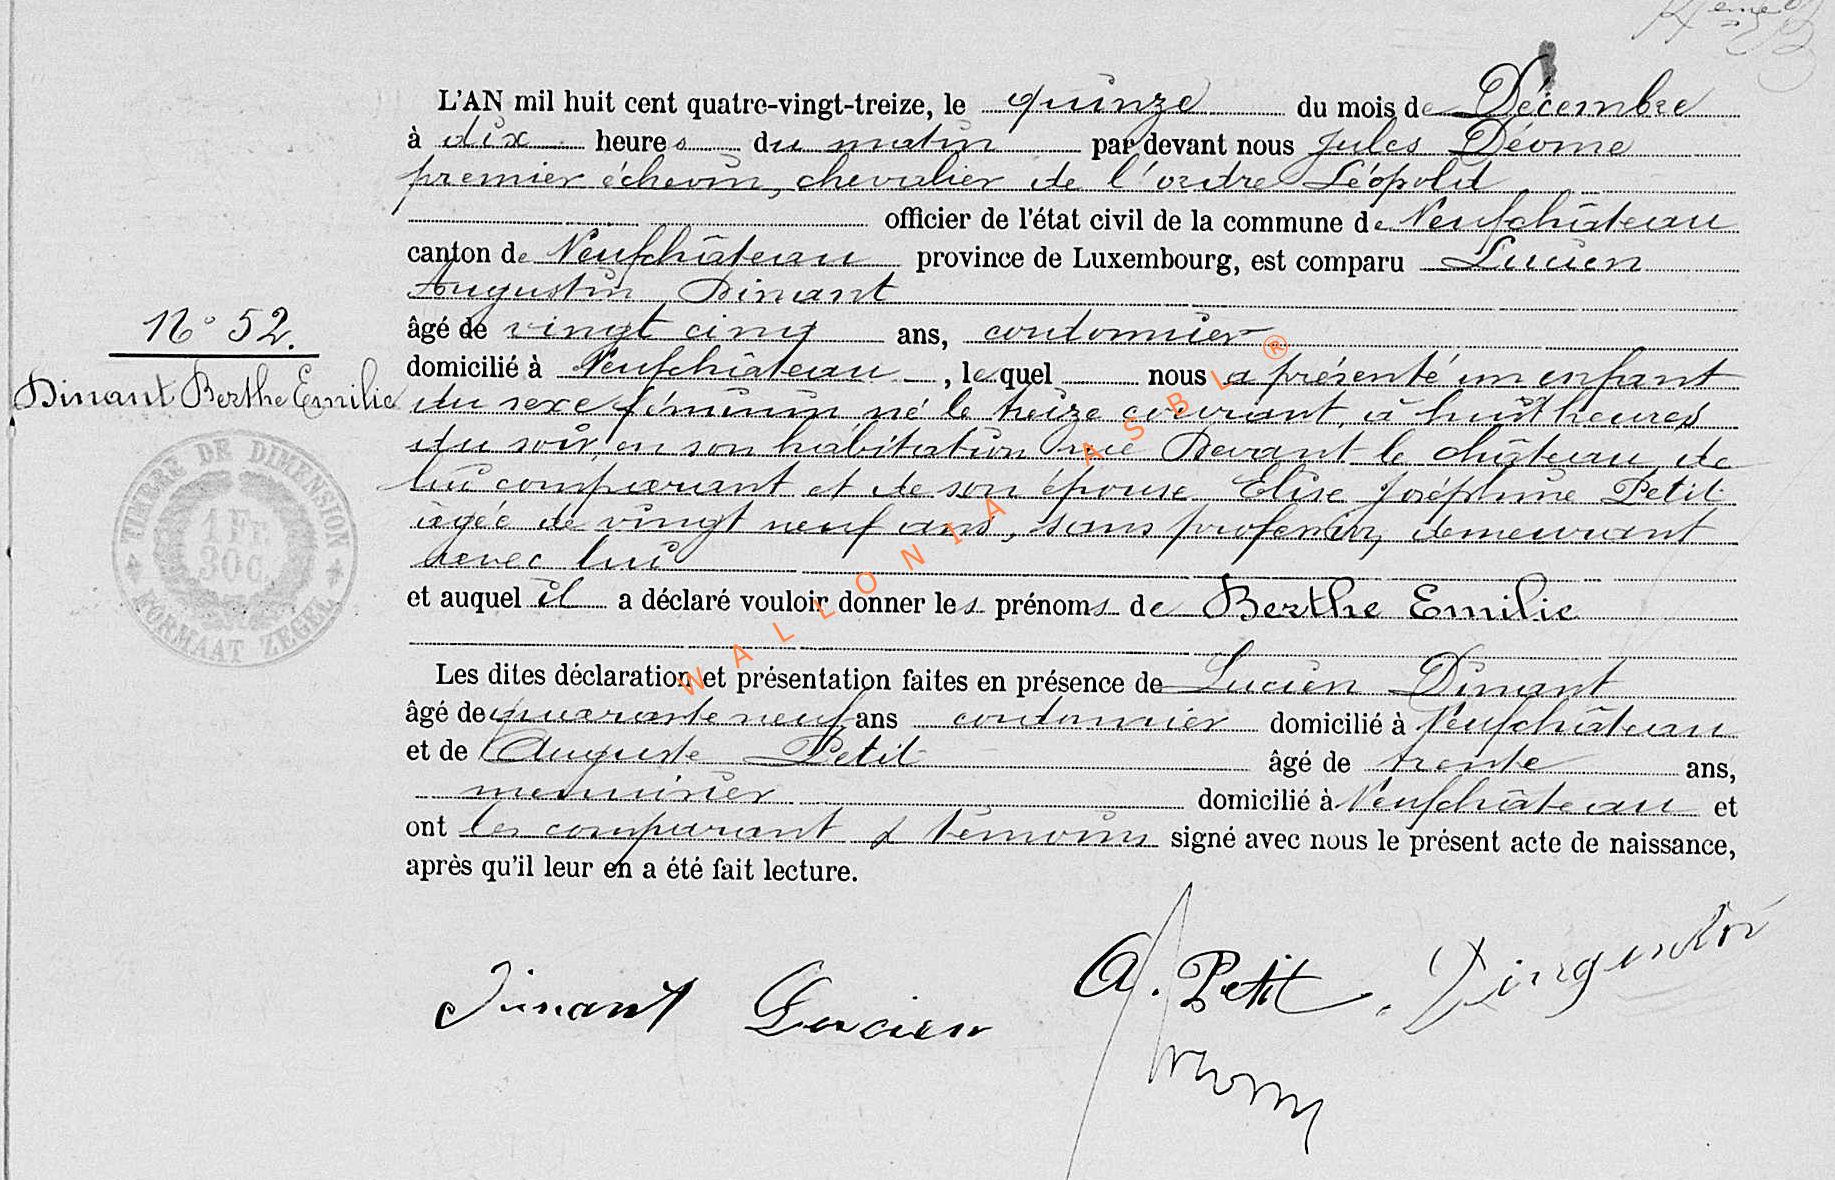 L'AN mil huit cent quatre-vingt-treize, le quinze du mois de Décembre
à dix heures du matin par devant nous Jules Déome
premier échevin, chevalier de l'ordre Léopold
officier de l'état civil de la commune de Neufchâteau
canton de Neufchâteau province de Luxembourg, est comparu Lucien
Augustin Dinant
âgé de vingt cinq ans, cordonnier
domicilié à Neufchâteau, lequel nous a présenté un enfant
du sexe féminin né le treize courant, à huit heures
du soir, en son habitation rue Devant le château, de
lui comparant et de son épouse Elise Joséphine Petit
âgée de vingt neuf ans, sans profession, demeurant
avec lui
et auquel il a déclaré vouloir donner les prénoms de Berthe Emilie
Les dites déclaration et présentation faites en présence de Lucien Dinant
âgé de quarante neuf ans cordonnier domicilié à Neufchâteau
et de Auguste Petit âgé de trente ans,
menuisier domicilié à Neufchâteau et
ont les comparant & témoins signé avec nous le présent acte de naissance,
après qu'il leur en a été fait lecture.
N° 52.
Dinant Berthe Emilie
TIMBRE DE DIMENSION
1 FR.
30 C.
FORMAAT ZEGEL
WALLONIA ASBL ®
Dinant Lucien
A. Petit